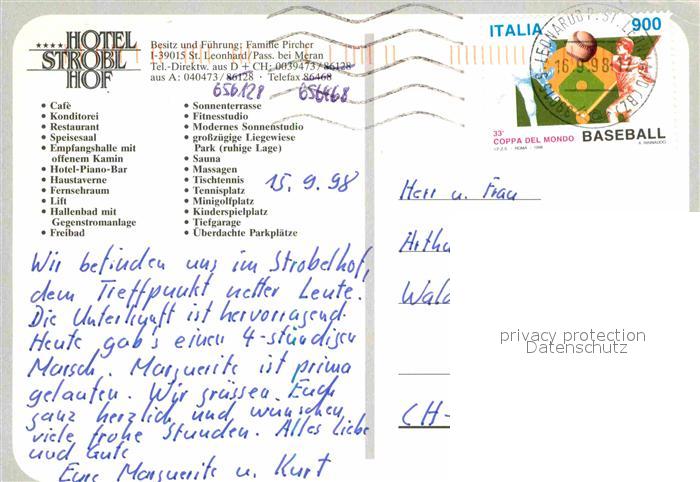 HOTEL
STROBL
HOF
Besitz und Führung: Familie Pircher
I-39015 St. Leonhard/Pass. bei Meran
Tel.-Direktw. aus D + CH: 0039473/86128
aus A: 040473/86128 · Telefax 86468
656128 656468
• Café
• Konditorei
• Restaurant
• Speisesaal
• Empfangshalle mit
offenem Kamin
• Hotel-Piano-Bar
• Haustaverne
• Fernsehraum
• Lift
• Hallenbad mit
Gegenstromanlage
• Freibad
• Sonnenterrasse
• Fitnesstudio
• Modernes Sonnenstudio
• großzügige Liegewiese
Park (ruhige Lage)
• Sauna
• Massagen
• Tischtennis
• Tennisplatz
• Minigolfplatz
• Kinderspielplatz
• Tiefgarage
• Überdachte Parkplätze
15.9.98
Wir befinden uns im Strobelhof,
dem Treffpunkt netter Leute.
Die Unterkunft ist hervorragend.
Heute gab's einen 4-stündigen
Marsch. Marguerite ist prima
gelaufen. Wir grüssen Euch
ganz herzlich und wünschen
viele frohe Stunden. Alles Liebe
und Gute
Eure Marguerite u. Kurt
ITALIA 900
16.9.98
33°
COPPA DEL MONDO BASEBALL
I.P.Z.S. - ROMA - 1998
Herr u. Frau
Arthu
Wald
CH-
privacy protection
Datenschutz